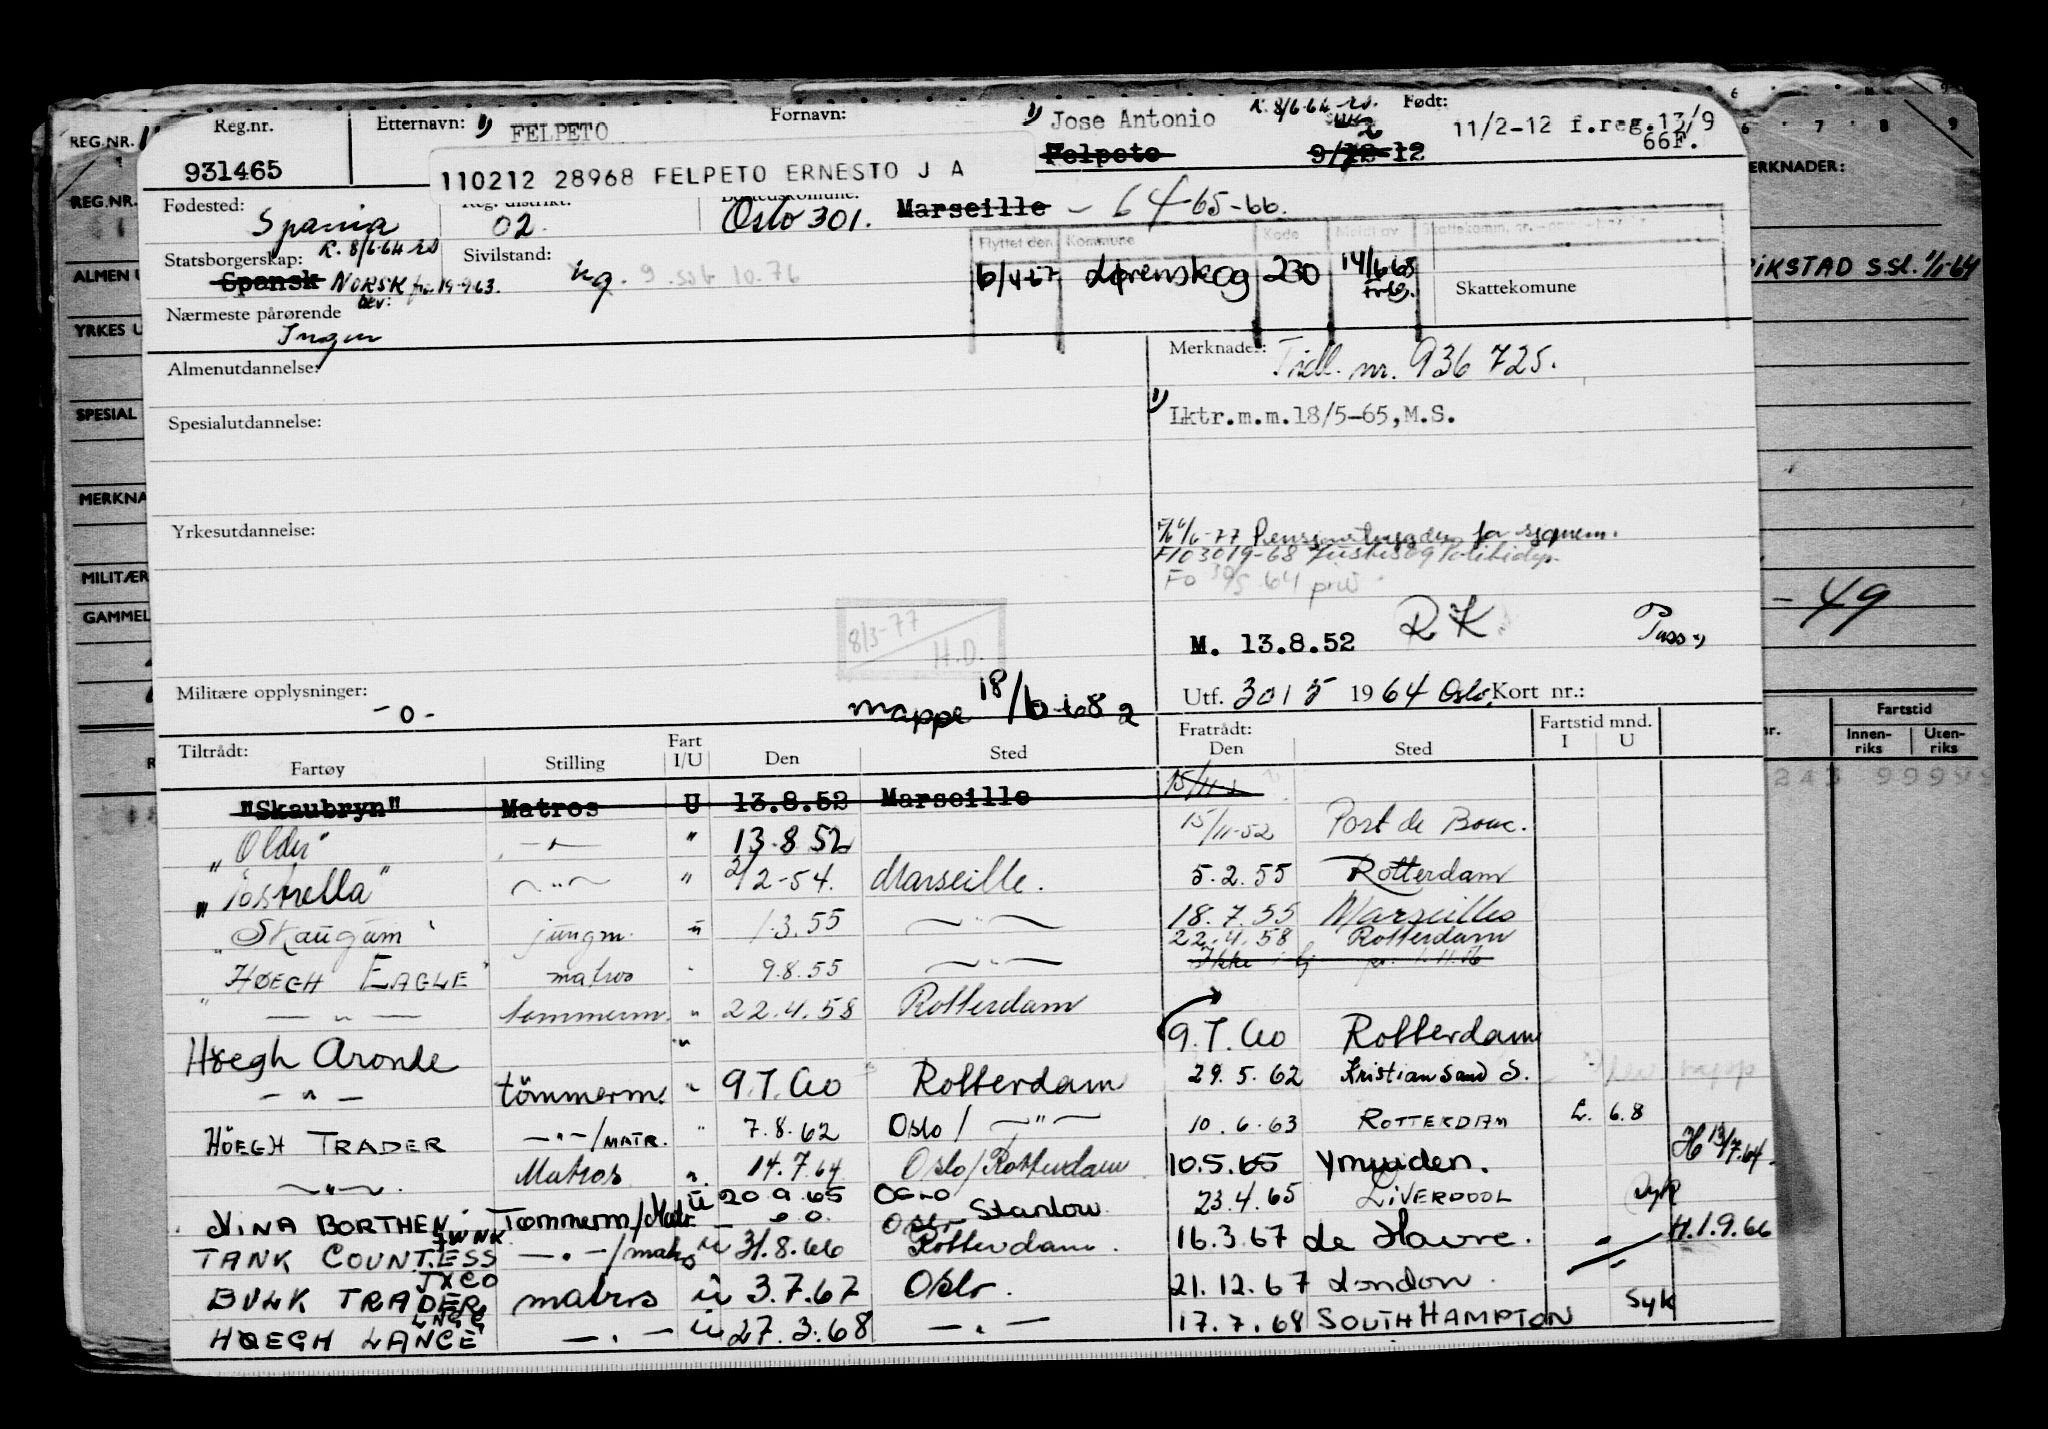 Reg.nr. Etternavn: 1) FELPETO Fornavn: 1) Jose Antonio R. 8/6-64 Født: 11/2-12 f.reg.13/9 66F.
931465 Felpeto 9/12-12
110212 28968 FELPETO ERNESTO J A
Fødested: Spania 02 Oslo 301. Marseille - 64-65-66.
Flyttet den Kommune Kode Meldt av
Statsborgerskap: R. 8/6-64 Sivilstand: ug. 9 10.76
Spansk NORSK 19-9 63. 6/4-67 Lørenskog 230 14/6 68 Skattekomune
bev:
Nærmeste pårørende
Ingen
Almenutdannelse: Merknader: Tidl. nr. 936 725.
Spesialutdannelse: 1) Lktr.m.m.18/5-65,M.S.
Yrkesutdannelse:
6-77 Pensjonstrygden for sjømenn.
F103019-68 Justis og Politidep.
Fo 64 priv
8/3-77 H.D.
M. 13.8.52 RK Pass
Militære opplysninger: -0- mappe 18/6-68 Utf. 30/5 1964 Oslo. Kort nr.:
Tiltrådt: Fartøy Stilling Fart I/U Den Sted Fratrådt: Den Sted Fartstid mnd. I U
"Skaubryn" Matros U 13.8.52 Marseille 15/11
"Older" - " - " 13.8 52 15/11-52 Port de Bouc.
" - " - " 2/2-54. Marseille. 5.2.55 Rotterdam
"Skaugum" jungm. ü 1.3.55 - " - 18.7.55 Marseilles
22.4.58 Rotterdam
"HØEGH EAGLE" matros " 9.8.55 - " -
" - " - tømmerm. " 22.4.58 Rotterdam
Høegh Aronde " 9.7.60 Rotterdam
- " - tömmerm. " 9.7.60 Rotterdam 29.5.62 Kristiansand S.
HÖEGH TRADER - " - /MATR. " 7.8.62 Oslo / - " - 10.6.63 ROTTERDAM L. 6.8
- " - Matros " 14.7.64 Oslo/Rotterdam 10.5.65 Ymuiden. H 13/7.64
NINA BORTHEN Tømmerm/Matr. ü 20 9.65 Oslo Stanlow 23.4.65 LIVERPOOL syk
JWNK
TANK COUNTESS - " - /matros u 31.8.66 Rotterdam. 16.3.67 le Havre. H.1.9.66
JXCO
BULK TRADER matros ü 3.7.67 Oslo. 21.12.67 London
HØEGH LANCE - " - ü 27.3.68 - " - 17.7.68 SOUTHHAMPTON Syk
REG.NR.
REG.NR.
ALMEN U
YRKES U
SPESIAL
MERKNA
MILITÆR
GAMMEL
MERKNADER:
1/1-64
- 49
Fartstid
Innen-riks Uten-riks